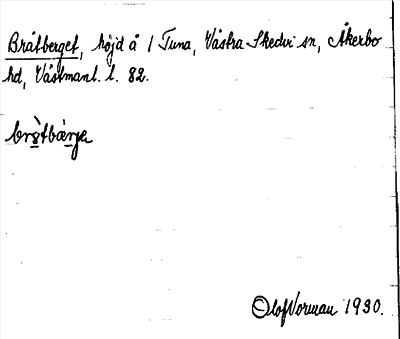 Bråtberget, höjd å 1 Tuna, Västra Skedvi sn, Åkerbo
hd, Västmanl. l. 82.
©Olof Norman 1930.